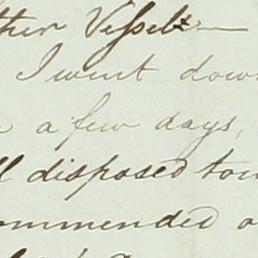 ther Vessels —
I went down
a few days,
ll disposed tow
ommended a